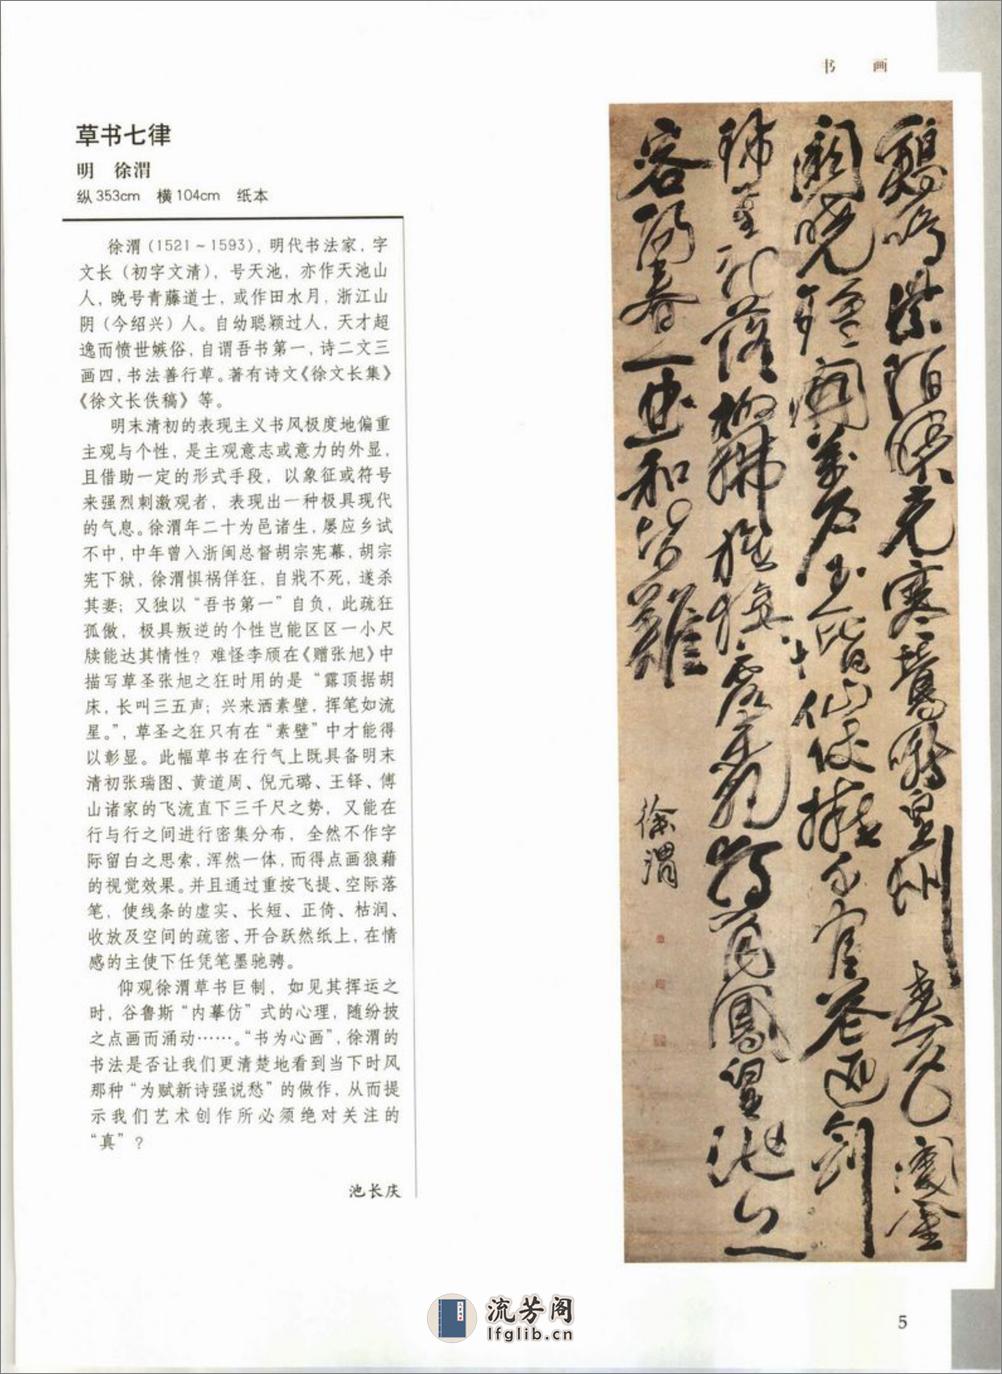 书 画
草书七律
明 徐渭
纵353cm 横104cm 纸本
徐渭（1521～1593），明代书法家，字
文长（初字文清），号天池，亦作天池山
人，晚号青藤道士，或作田水月，浙江山
阴（今绍兴）人。自幼聪颖过人，天才超
逸而愤世嫉俗，自谓吾书第一，诗二文三
画四，书法善行草。著有诗文《徐文长集》
《徐文长佚稿》等。
明末清初的表现主义书风极度地偏重
主观与个性，是主观意志或意力的外显，
且借助一定的形式手段，以象征或符号
来强烈刺激观者，表现出一种极具现代
的气息。徐渭年二十为邑诸生，屡应乡试
不中，中年曾入浙闽总督胡宗宪幕，胡宗
宪下狱，徐渭惧祸佯狂，自戕不死，遂杀
其妻；又独以“吾书第一”自负，此疏狂
孤傲，极具叛逆的个性岂能区区一小尺
牍能达其情性？难怪李颀在《赠张旭》中
描写草圣张旭之狂时用的是“露顶据胡
床，长叫三五声；兴来洒素壁，挥笔如流
星。”，草圣之狂只有在“素壁”中才能得
以彰显。此幅草书在行气上既具备明末
清初张瑞图、黄道周、倪元璐、王铎、傅
山诸家的飞流直下三千尺之势，又能在
行与行之间进行密集分布，全然不作字
际留白之思索，浑然一体，而得点画狼藉
的视觉效果。并且通过重按飞提、空际落
笔，使线条的虚实、长短、正倚、枯润、
收放及空间的疏密、开合跃然纸上，在情
感的主使下任凭笔墨驰骋。
仰观徐渭草书巨制，如见其挥运之
时，谷鲁斯“内摹仿”式的心理，随纷披
之点画而涌动……。“书为心画”，徐渭的
书法是否让我们更清楚地看到当下时风
那种“为赋新诗强说愁”的做作，从而提
示我们艺术创作所必须绝对关注的
“真”？
池长庆
鸡鸣紫陌曙光寒莺啭皇州春色阑金
阙晓钟开万户玉阶仙仗拥千官花迎剑
珮星初落柳拂旌旗露未乾独有凤凰池上
客阳春一曲和皆难
徐渭
流芳阁
lfglib.cn
5